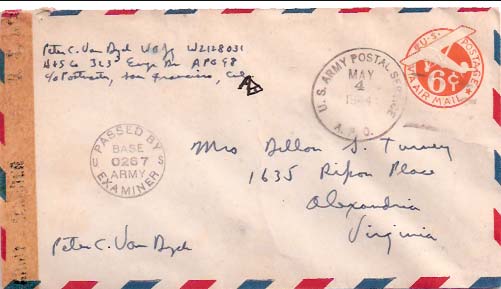 Peter C. Van Dyck W2128031
APO 98
c/o Postmaster, San Francisco, Cal
U.S. POSTAGE
6¢
VIA AIR MAIL
U. S. ARMY POSTAL SERVICE
MAY
4
A. P. O.
PASSED BY
BASE
0267
ARMY
EXAMINER
U S
Mrs Dillon S. Turney
1635 Ripon Place
Alexandria
Virginia
Peter C. Van Dyck